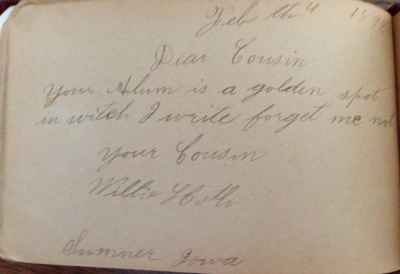 Feb th 4
Dear Cousin
your Alum is a golden spot
in witch I write forget me not
your Cousin
Willie
Sumner Iowa